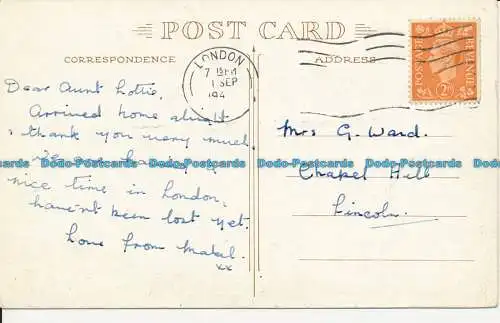 POST CARD
CORRESPONDENCE
ADDRESS
LONDON
7 15 PM
1 SEP
194
POSTAGE
REVENUE
2D
Dear Aunt Lottie,
Arrived home alright
thank you very much
nice time in London,
haven't been lost yet.
Love from Mabel.
xx
Mrs G. Ward.
Chapel Hill
Lincoln.
Do-Postcards Do-Postcards Do-Postcards Do-Postcards Do-Postcards